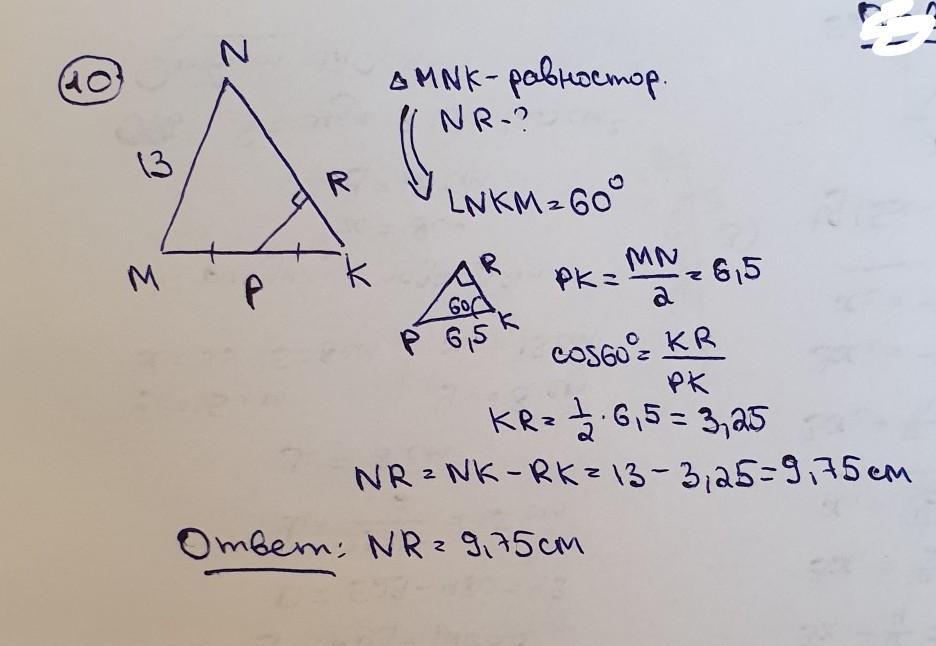 10
N
13
R
M
P
K
△MNK - равностор.
NR - ?
∠NKM = 60°
R
60
P
6,5
K
PK = MN/2 = 6,5
cos60° = KR/PK
KR = 1/2 · 6,5 = 3,25
NR = NK - RK = 13 - 3,25 = 9,75 см
Ответ: NR = 9,75 см